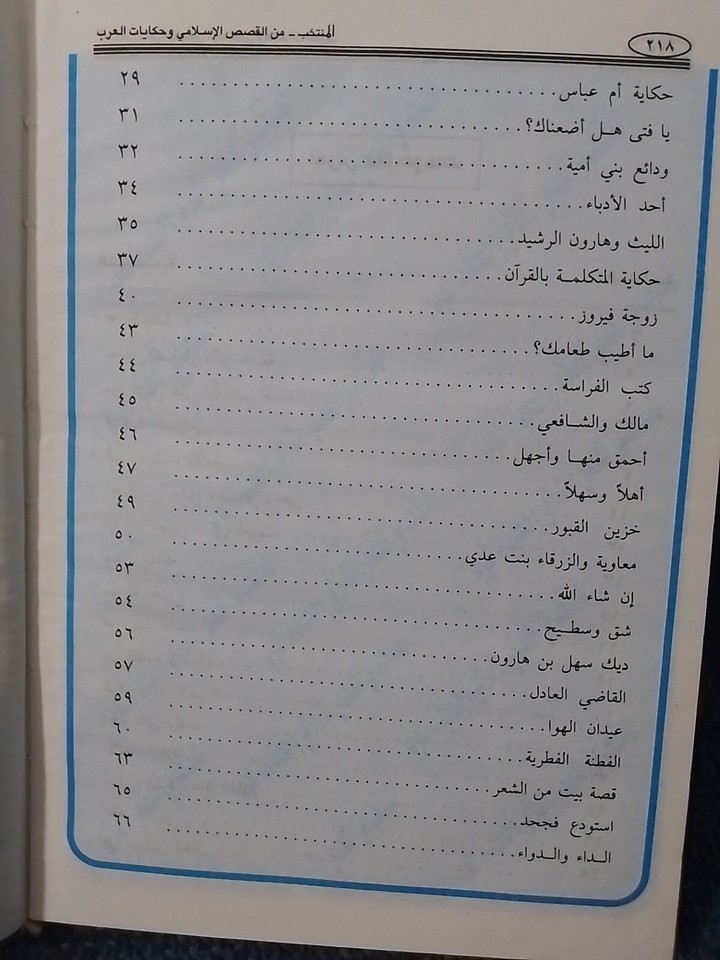 ٢١٨ المنتخب - من القصص الإسلامي وحكايات العرب
حكاية أم عباس ........ ٢٩
يا فتى هل أضعناك؟ ........ ٣١
ودائع بني أمية ........ ٣٢
أحد الأدباء ........ ٣٤
الليث وهارون الرشيد ........ ٣٥
حكاية المتكلمة بالقرآن ........ ٣٧
زوجة فيروز ........ ٤٠
ما أطيب طعامك؟ ........ ٤٣
كتب الفراسة ........ ٤٤
مالك والشافعي ........ ٤٥
أحمق منها وأجهل ........ ٤٦
أهلاً وسهلاً ........ ٤٧
خزين القبور ........ ٤٩
معاوية والزرقاء بنت عدي ........ ٥٠
إن شاء الله ........ ٥٣
شق وسطيح ........ ٥٤
ديك سهل بن هارون ........ ٥٦
القاضي العادل ........ ٥٧
عيدان الهوا ........ ٥٩
الفطنة الفطرية ........ ٦٠
قصة بيت من الشعر ........ ٦٣
استودع فجحد ........ ٦٥
الداء والدواء ........ ٦٦